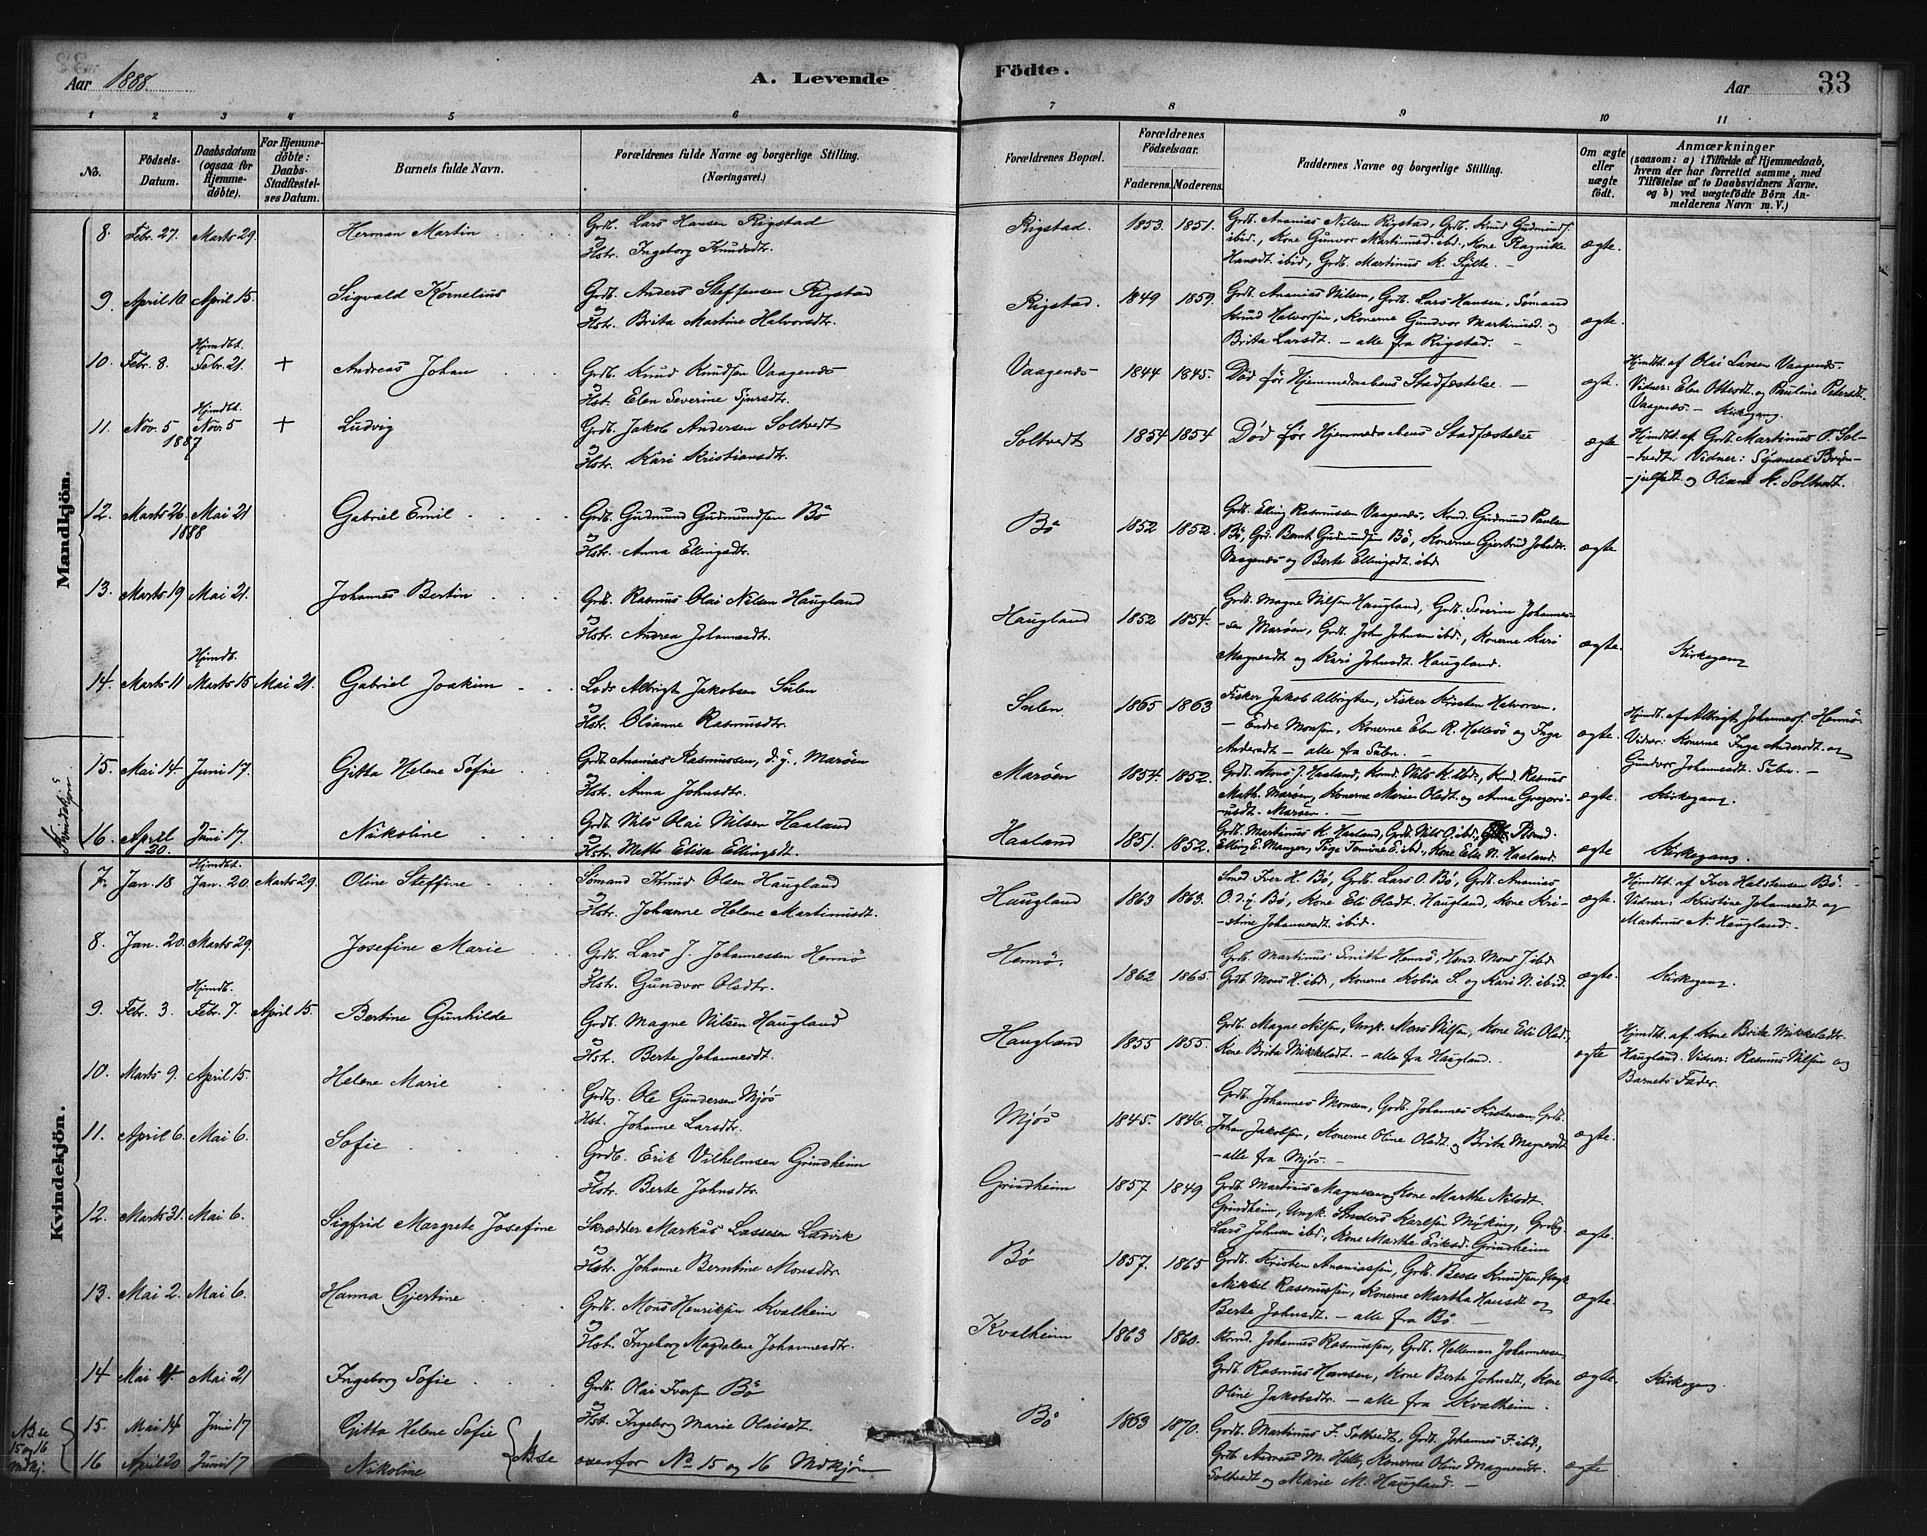 Aar 1888. A. Levende Födte. Aar 33
1 2 3 4 5 6 7 8 9 10 11
No. Födsels-Datum. Daabsdatum (ogsaa for Hjemme-döbte). For Hjemme-döbte: Daabs-Stadfæstel-ses Datum. Barnets fulde Navn. Forældrenes fulde Navne og borgerlige Stilling. (Næringsvei.) Forældrenes Bopæl. Forældrenes Födselsaar. Faderens. Moderens. Faddernes Navne og borgerlige Stilling. Om ægte eller uægte födt. Anmærkninger (saasom: a) i Tilfælde af Hjemmedaab, hvem der har forrettet samme, med Tilföielse af to Daabsvidners Navne. og b) ved uægtefödte Börn An-melderens Navn m. V.)
Mandkjön.
8. Febr. 27. Marts 29. Herman Martin Grdb. Lars Hansen Rigstad
og Hstr. Ingeborg Knudsdtr.
Rigstad. 1853. 1851. Grdb. Ananias Nilsen Rigstad, Grdb. Knud Gudmunds.
ibid., Kone Gunvor Martinusd. ibd., Kone Ragnilde
Hansdt. ibid, Grdb. Martinus K. Sylte. — ægte.
9. April 10 April 15. Sigvald Kornelius Grdb. Anders Steffensen Rigstad
og Hstr. Brita Martine Halvorsdtr.
Rigstad. 1849 1859. Grdb. Ananias Nilsen, Grdb. Lars Hansen, Sömand
Knud Halvorsen, Konerne Gundvor Martinusd. og
Brita Larsdt. — alle fra Rigstad. — ægte.
10. Febr. 8. Hjmdbt. Febr. 21. + Andreas Johan Grdb. Knud Knudsen Vaagenes
og Hst. Elen Severine Sjursdtr.
Vaagenes 1844 1845. Död för Hjemmedaabens Stadfæstelse. — ægte.
Hjmdbt. af Olai Larsen Vaagenes.
Vidner: Elen Ottesdt. og Pauline Pedersdt.
Vaagenes. — Kirkegang.
11. Nov. 5 1887 Hjmdbt. Nov. 5 + Ludvig Grdb. Jakob Andersen Soltvedt
og Hstr. Kari Kristiansdtr.
Soltvedt 1854 1854 Död för Hjemmedaabens Stadfæstelse ægte
Hjmdbt. af Grdb. Martinus O. Sol-
-tvedt. Vidner:
og Oliane K. Soltvedt.
12. Marts 26. 1888 Mai 21 Gabriel Emil Grdb. Gudmund Gudmundsen Bö
og Hstr. Anna Ellingsdtr.
Bö 1852 1852. Grdb. Elling Rasmussen Vaagenes, Kmd. Gudmund Paulsen
Bö, Grd. Bernt Gudmundsen Bö, Konerne Gjertrud Johsdtr.
Vaagenes og Berte Ellingsdt. ibd. ægte
13. Marts 19 Mai 21. Johannes Bertin Grdb. Rasmus Olai Nilsen Haugland
og Hstr. Andrea Johannesdtr.
Haugland 1852 1854. Grdb. Magne Nilsen Haugland, Grdb. Severin Johannes-
-sen Maröen, Grdb. John Johnsen ibd., Konerne Kari
Magnesdt og Kari Johnsdt. Haugland. ægte. Kirkegang
14. Marts 11 Hjmdbt. Marts 15 Mai 21. Gabriel Joakim Lods Albrigt Jakobsen Sulen
og Hstr. Olianne Rasmusdtr.
Sulen. 1865 1863 Fisker Jakob Albrigtsen, Fisker Kristen Halvorsen.
— Endre Monsen, Konerne Elen R. Hellesö og Inga
Andersdt — alle fra Sulen. — ægte.
Hjmdbt. af Albrigt Johanness. Hennö.
Vidner: Konerne Inga Andersdt og
Gundvor Johannesdt. Sulen. —
Kvindekjön
15. Mai 14 Juni 17. Gitta Helene Sofie Grdb. Ananias Rasmussen, d. y., Maröen
og Hstr. Anna Johnsdtr.
Maröen 1854. 1852. Grdb. Mons J. Haaland, Kmd. Nils K. ibd., Kmd. Rasmus
Math. Maröen, Konerne Marie Olsdt. og Anne Gregori-
usdt. Maröen. — ægte. Kirkegang.
16. April 20. Juni 17. Nikoline Grdb. Nils Olai Nilsen Haaland
og Hstr. Mette Elisa Ellingsdt.
Haaland 1851. 1852. Grdb. Martinus K. Haaland, Grdb. Nils O. ibd.,
Elling E. Manger, Pige Tomine E. ibd., Kone Else N. Haaland. ægte Kirkegang.
Kvindekjön.
7. Jan. 18 Hjmdbt. Jan. 20. Marts 29. Oline Steffine Sömand Knud Olsen Haugland
og Hstr. Johanne Helene Martinusdt.
Haugland 1863 1863. Smed Iver H. Bö, Grdb. Lars O. Bö, Grdb. Ananias
O. d. y. Bö, Kone Eli Olsdt. Haugland, Kone Kri-
-stine Johannesdt. ibid. ægte.
Hjmdbt. af Iver Halstensen Bö.
Vidner: Kristine Johannesdt og
Martinus N. Haugland. —
8. Jan. 20. Marts 29. Josefine Marie Grdb. Lars J. Johannessen Hennö
og Hstr. Gundvor Olsdtr.
Hennö. 1862 1865. Grdb. Martinus Smith Hennö, Kmd. Mons J. ibd.
Grdb. Mons H. ibd., Konerne Kobia S. og Kari N. ibid. ægte. Kirkegang.
9. Febr. 3. Hjmdb. Febr. 7. April 15. Bertine Gunhilde Grdb. Magne Nilsen Haugland
og Hstr. Berte Johannesdt.
Haugland 1855 1855. Grdb. Magne Nilsen, Ungk. Mons Nilsen, Kone Eli Olsd.
Kone Brita Mikkelsdt. — alle fra Haugland. ægte
Hjmdbt. af Kone Brita Mikkelsdtr.
Haugland. Vidner: Rasmus Nilsen og
Barnets Fader.
10. Marts 9. April 15. Helene Marie Grdbg. Ole Gundersen Mjös
Hst. Johanne Larsdtr.
Mjös 1845. 1846. Grdb. Johannes Monsen, Grdb. Johannes Kristensen, Grdb.
Johan Jakobsen, Konerne Oline Olsdt. og Brita Magnesdt
— alle fra Mjös. — ægte.
11. April 6. Mai 6. Sofie Grdb. Erik Vilhelmsen Grindheim
og Hstr. Berte Johnsdtr.
Grindheim 1857 1849 Grdb. Martinus Magnesen, Kone Marthe Nilsdt.
Grindheim, Ungk. Anders Karlsen Myking, Grdbg.
Lars Johnsen ibd., Kone Marthe Eriksd. Grindheim ægte.
12. Marts 31. Mai 6. Sigfrid Margrete Josefine Skrædder Markus Lassesen Ladvik
og Hstr. Johanne Berntine Monsdtr.
Bö 1857. 1865 Grdb. Kristen Ananiassen, Grdb. Besse Knudsen, Ungk.
Mikkel Rasmussen, Konerne Martha Hansdt og
Berte Johnsdt. — alle fra Bö. — ægte.
13. Mai 2. Mai 6. Hanna Gjertine Grdb. Mons Henriksen Kvalheim
og Hstr. Ingeborg Magdalene Johannesdtr.
Kvalheim 1863 1860. Kmd. Johannes Rasmussen, Grdb. Helleman Johannesen,
Grdb. Rasmus Hansen, Kone Berte Johnsdt, Kone
Oline Jakobsdtr. — alle fra Kvalheim. ægte. Kirkegang.
14 Mai 4. Mai 21 Ingeborg Sofie Grdb. Olai Iversen Bö
og Hst. Ingeborg Marie Olaisdt.
Bö 1863 1870. Grdb. Martinus F. Soltvedt, Grdb. Johannes F. ibd.,
Grdb. Andreas M. Helle, Konerne Oline Magnesdtr.
Soltvedt og Marie M. Haugland. — ægte
NB. se 15 og 16 Mdkj.
15. Mai 14 Juni 17 Gitta Helene Sofie
16 April 20 Juni 17 Nikoline NB. se ovenfor No 15 og 16 Mdkjön